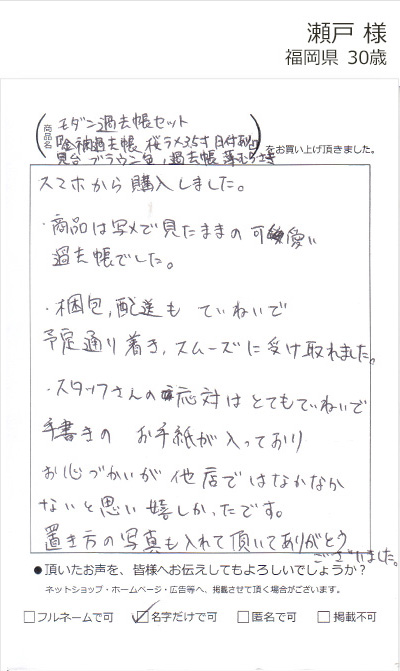 瀬戸 様
福岡県 30歳
商品名
モダン過去帳セット
過去帳 桜ラメ3.5寸 日付あり
見台 ブラウン 過去帳 薄むらさき
をお買い上げ頂きました。
スマホから購入しました。
・商品は写メで見たままの可愛い
過去帳でした。
・梱包,配送も ていねいで
予定通り着き,スムーズに受け取れました。
・スタッフさんの応対はとてもていねいで
手書きの お手紙が入っており
お心づかいが他店ではなかなか
ないと思い嬉しかったです。
置き方の写真も入れて頂いてありがとう
ございました。
●頂いたお声を、皆様へお伝えしてもよろしいでしょうか?
ネットショップ・ホームページ・広告等へ、掲載させて頂く場合がございます。
□フルネームで可 ☑名字だけで可 □匿名で可 □掲載不可